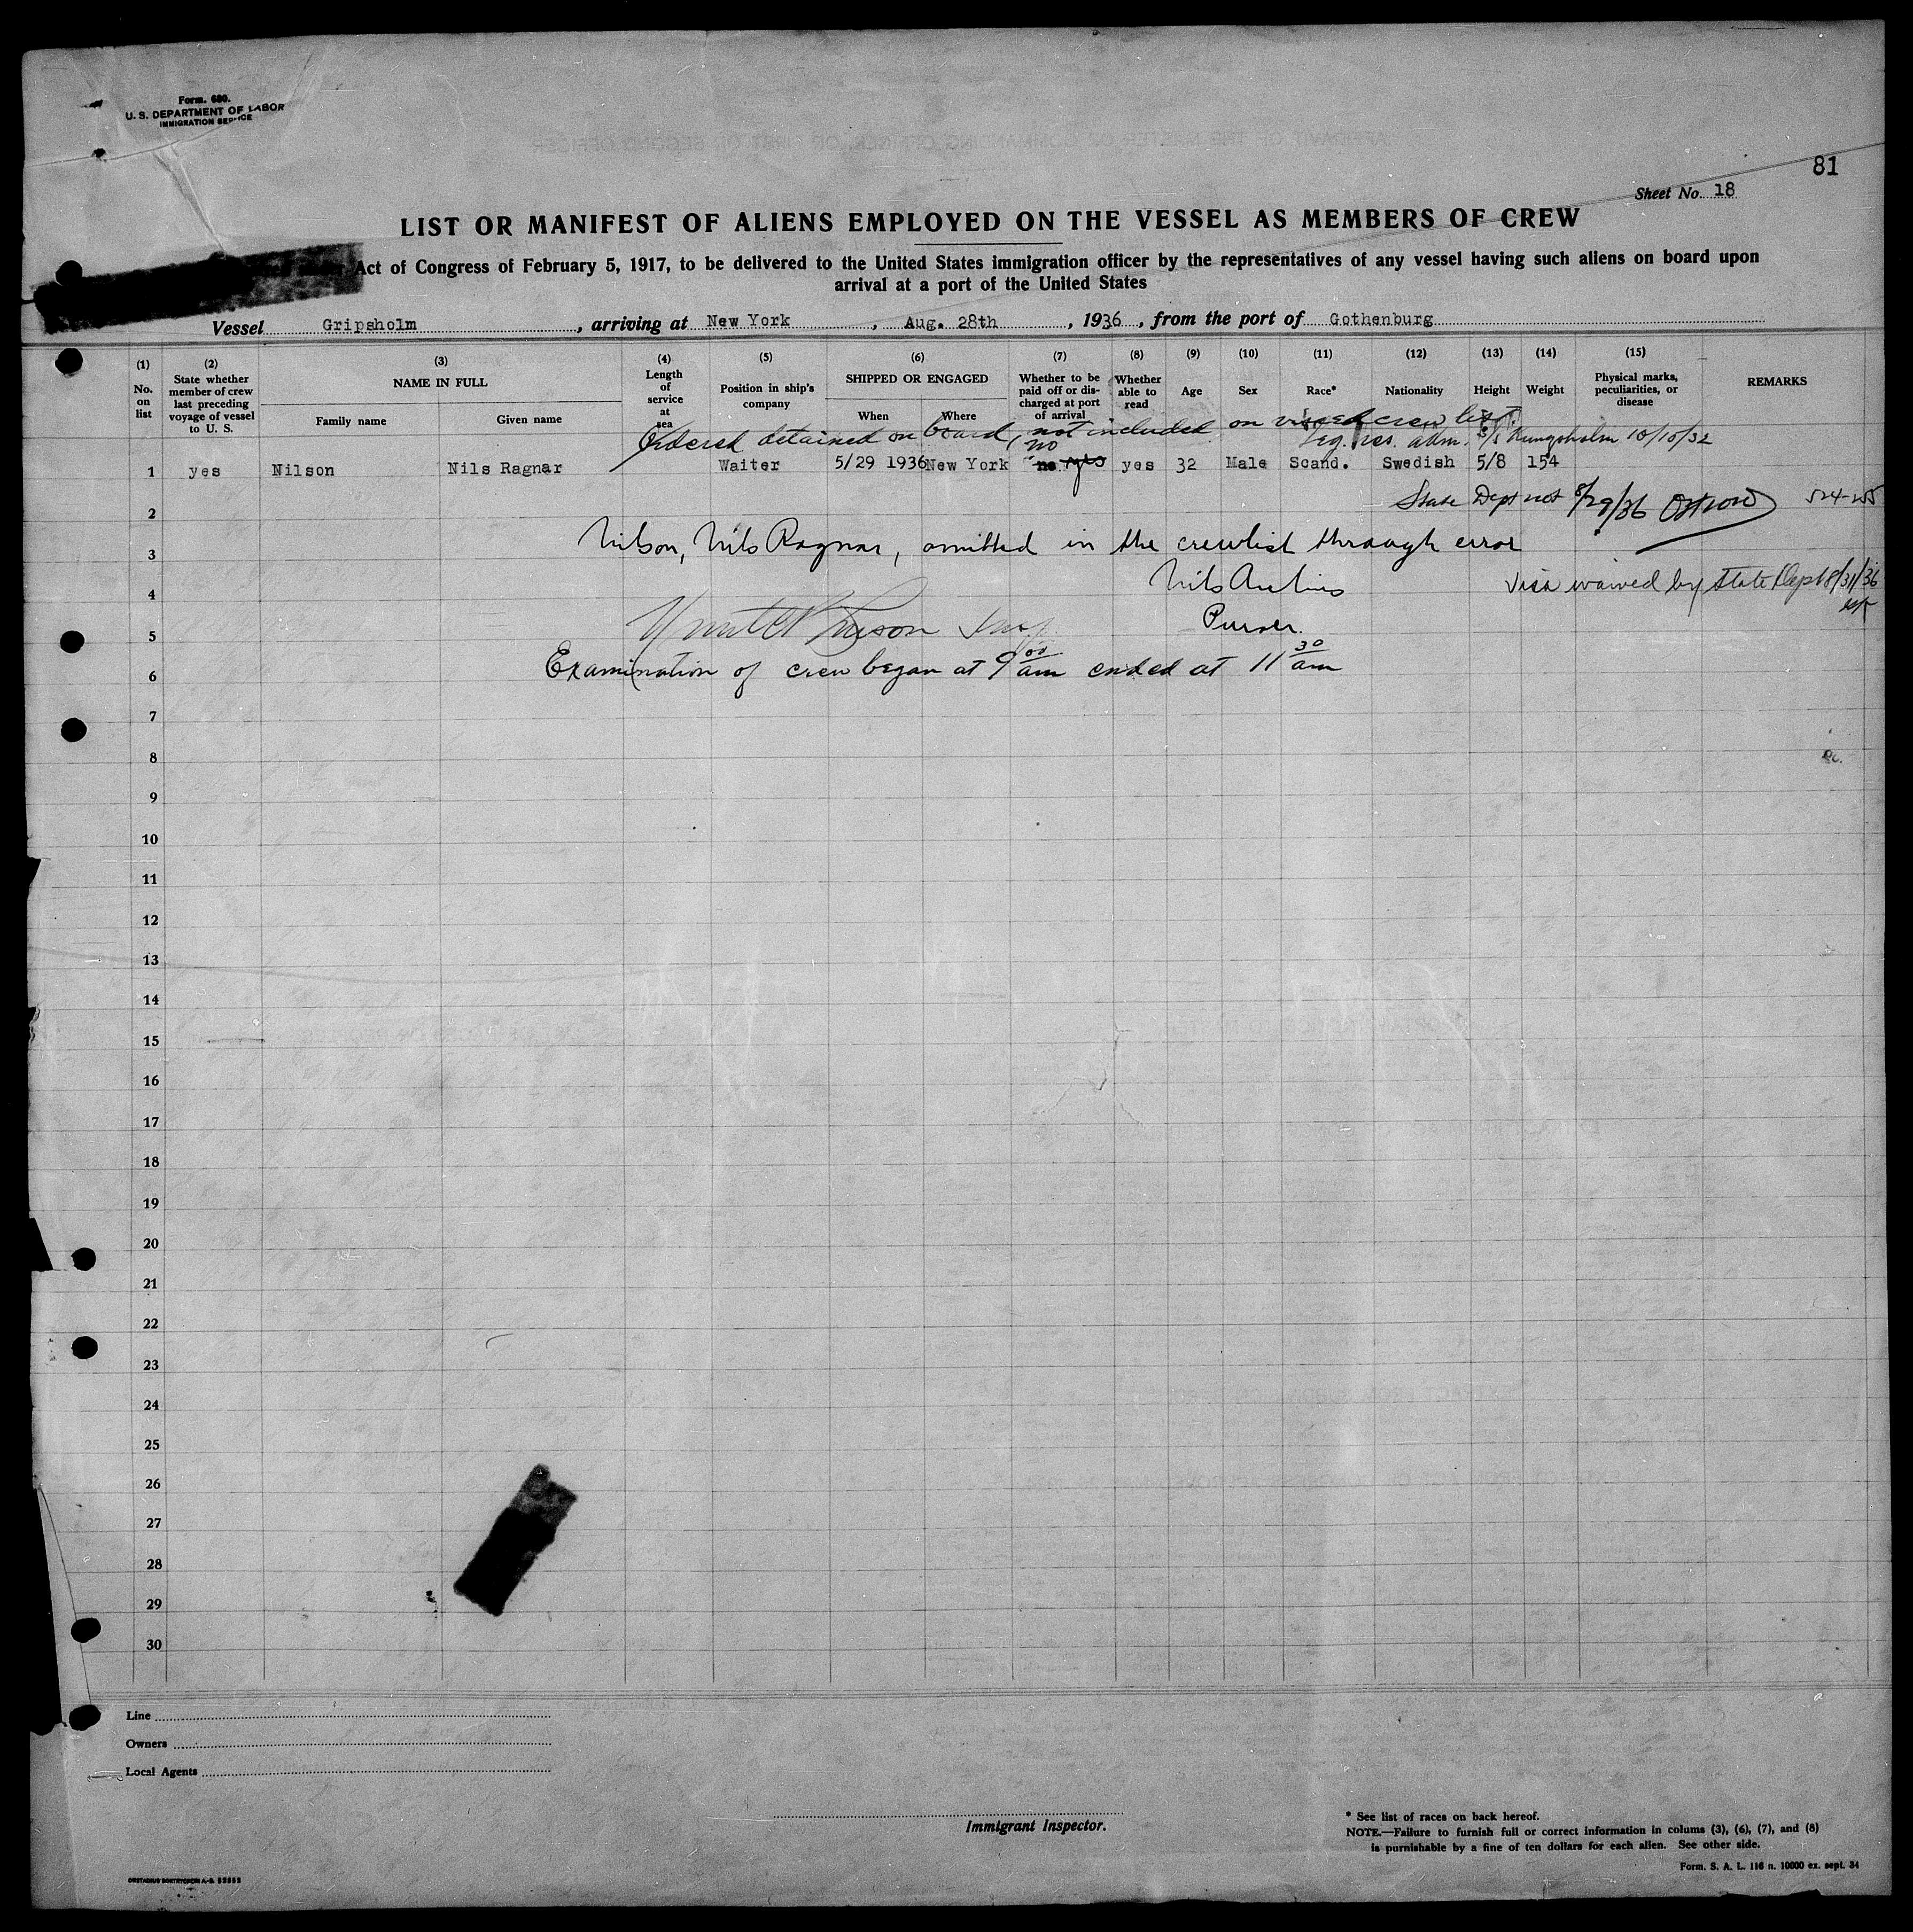 Form. 680.
U. S. DEPARTMENT OF LABOR
IMMIGRATION SERVICE
81
Sheet No. 18
LIST OR MANIFEST OF ALIENS EMPLOYED ON THE VESSEL AS MEMBERS OF CREW
Act of Congress of February 5, 1917, to be delivered to the United States immigration officer by the representatives of any vessel having such aliens on board upon
arrival at a port of the United States
Vessel Gripsholm, arriving at New York, Aug. 28th, 1936, from the port of Gothenburg
(1) (2) (3) (4) (5) (6) (7) (8) (9) (10) (11) (12) (13) (14) (15)
No. on list
State whether member of crew last preceding voyage of vessel to U. S.
NAME IN FULL
Family name
Given name
Length of service at sea
Position in ship's company
SHIPPED OR ENGAGED
When
Where
Whether to be paid off or discharged at port of arrival
Whether able to read
Age
Sex
Race*
Nationality
Height
Weight
Physical marks, peculiarities, or disease
REMARKS
Ordered detained on board, not included on visaed crew list.
Leg. res. adm. S/S Kungsholm 10/10/32
no
1 yes Nilson Nils Ragnar Waiter 5/29 1936 New York no yes yes 32 Male Scand. Swedish 5/8 154
2 State Dept not 8/29/36
3 Nilson, Nils Ragnar, omitted in the crewlist through error
4 Nils Visa waived by State Dept 8/31/36
5 Purser.
6 Examination of crew began at 9 00 am ended at 11 30 am
7
8
9
10
11
12
13
14
15
16
17
18
19
20
21
22
23
24
25
26
27
28
29
30
Line
Owners
Local Agents
Immigrant Inspector.
* See list of races on back hereof.
NOTE.—Failure to furnish full or correct information in colums (3), (6), (7), and (8)
is purnishable by a fine of ten dollars for each alien. See other side.
Form. S. A. L. 116 n. 10000 ex. sept. 34